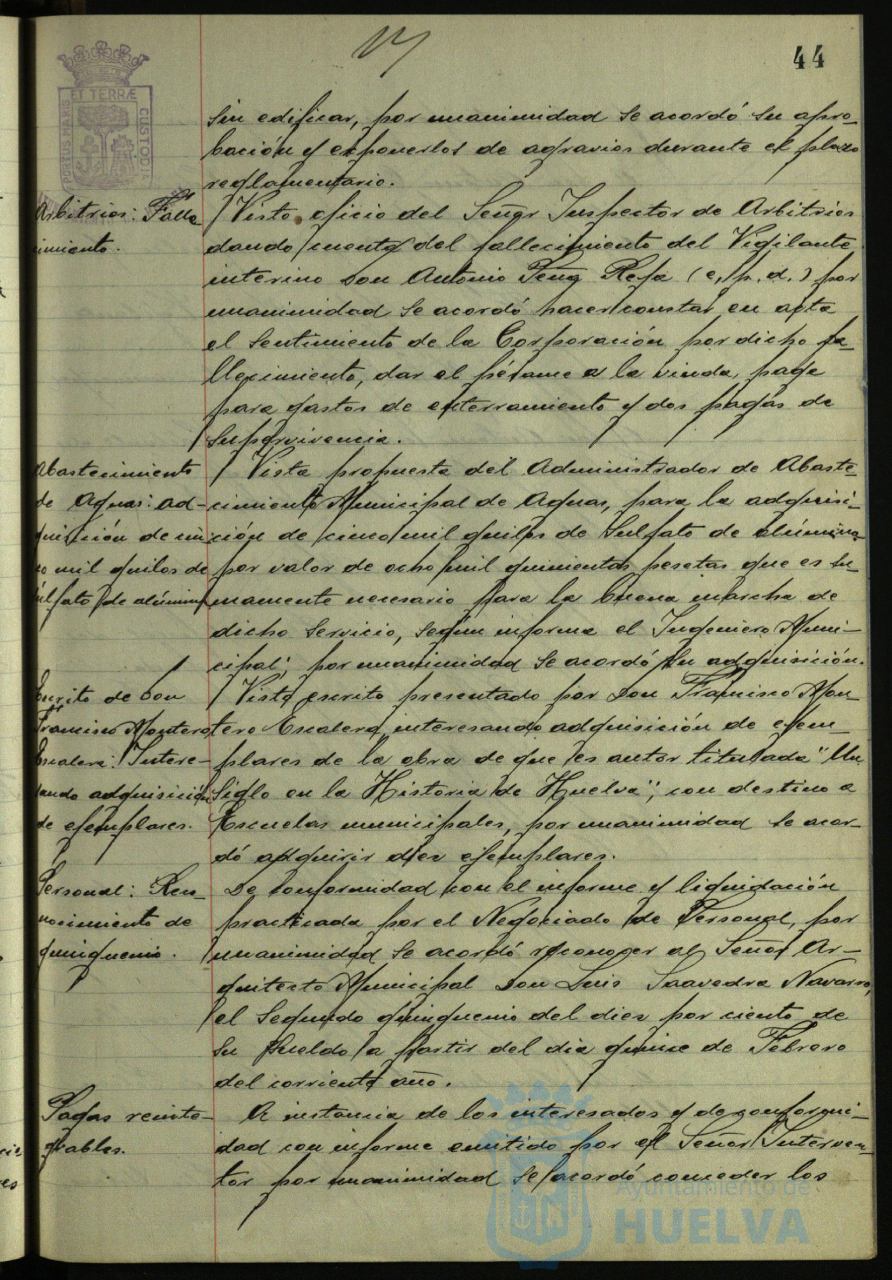 44
PORTUS MARIS ET TERRÆ CUSTODIA
sin edificar, por unanimidad se acordó su apro-
bación y exponerlos de agravios durante el plazo
reglamentario.
Arbitrios: Falle-
cimiento.
/ Visto oficio del Señor Inspector de Arbitrios
dando cuenta del fallecimiento del Vigilante
interino Don Antonio Peña (e.p.d.) por
unanimidad se acordó hacer constar en acta
el sentimiento de la Corporación por dicho fa-
llecimiento, dar el pésame a la viuda, paga
para gastos de enterramiento y dos pagas de
supervivencia.
Abastecimiento
de Aguas: ad-
quisición de cin-
co mil quilos de
sulfato de alúmina
/ Vista propuesta del Administrador de Abaste-
cimiento Municipal de Aguas, para la adquisi-
ción de cinco mil quilos de Sulfato de alúmina
por valor de ocho mil quinientas pesetas que es su-
mamente necesario para la buena marcha de
dicho servicio, según informa el Ingeniero Muni-
cipal; por unanimidad se acordó su adquisición.
Escrito de Don
Francisco Montero
Escalera: Intere-
sando adquisición
de ejemplares.
/ Visto escrito presentado por Don Francisco Mon-
tero Escalera, interesando adquisición de ejem-
plares de la obra de que es autor titulada "Un
Siglo en la Historia de Huelva", con destino a
Escuelas municipales, por unanimidad se acor-
dó adquirir diez ejemplares.
Personal: Reco-
nocimiento de
quinquenio.
De conformidad con el informe y liquidación
practicada por el Negociado de Personal, por
unanimidad se acordó reconocer al Señor Ar-
quitecto Municipal Don Luis Saavedra Navarro,
el segundo quinquenio del diez por ciento de
su sueldo a partir del día quince de Febrero
del corriente año.
Pagas reinte-
grables.
A instancia de los interesados y de conformi-
dad con informe emitido por el Señor Interven-
tor por unanimidad se acordó conceder los
Ayuntamiento de
HUELVA